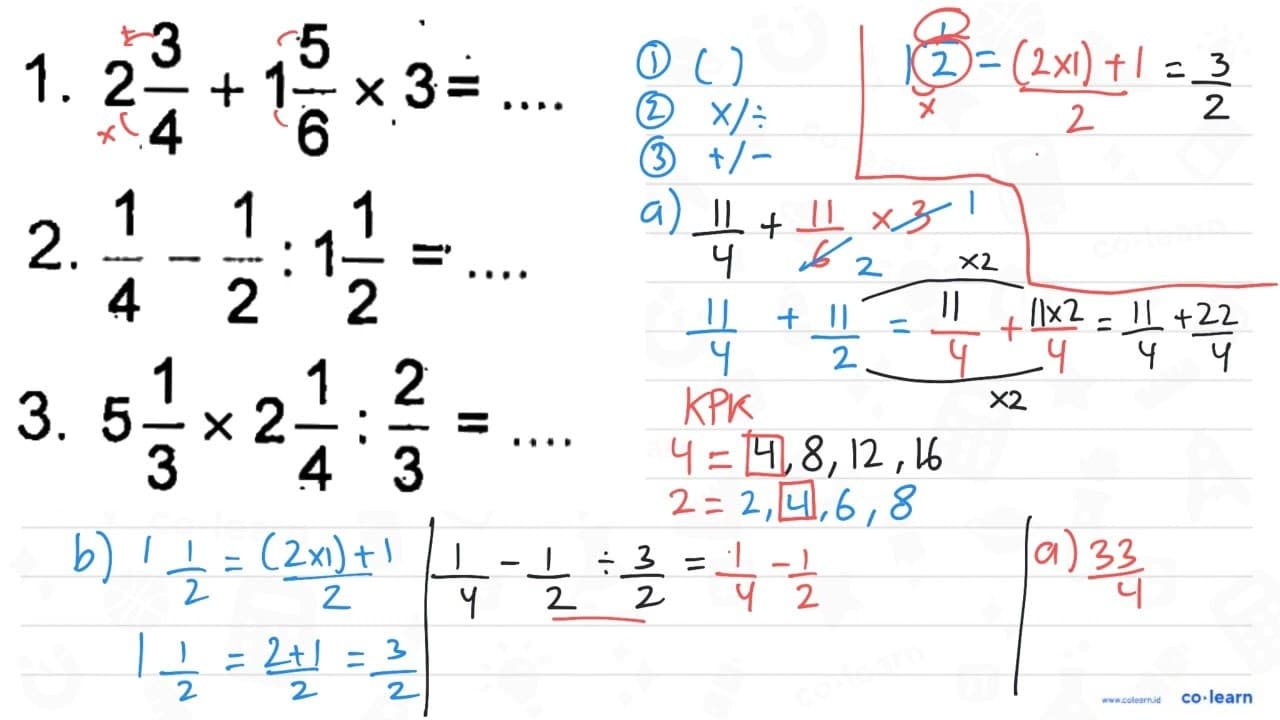 1. 2 3/4 + 1 5/6 × 3 = ....
2. 1/4 - 1/2 : 1 1/2 = ....
3. 5 1/3 × 2 1/4 : 2/3 = ....
① ( )
② x/÷
③ +/-
1 1/2 = (2x1) + 1 / 2 = 3/2
x
+
x
a) 11/4 + 11/6 x 3 1
2
x2
11/4 + 11/2 = 11/4 + 11x2/4 = 11/4 + 22/4
x2
KPK
4 = 4, 8, 12, 16
2 = 2, 4, 6, 8
b) 1 1/2 = (2x1) + 1 / 2
1 1/2 = 2+1/2 = 3/2
1/4 - 1/2 ÷ 3/2 = 1/4 - 1/2
a) 33/4
www.colearn.id co·learn